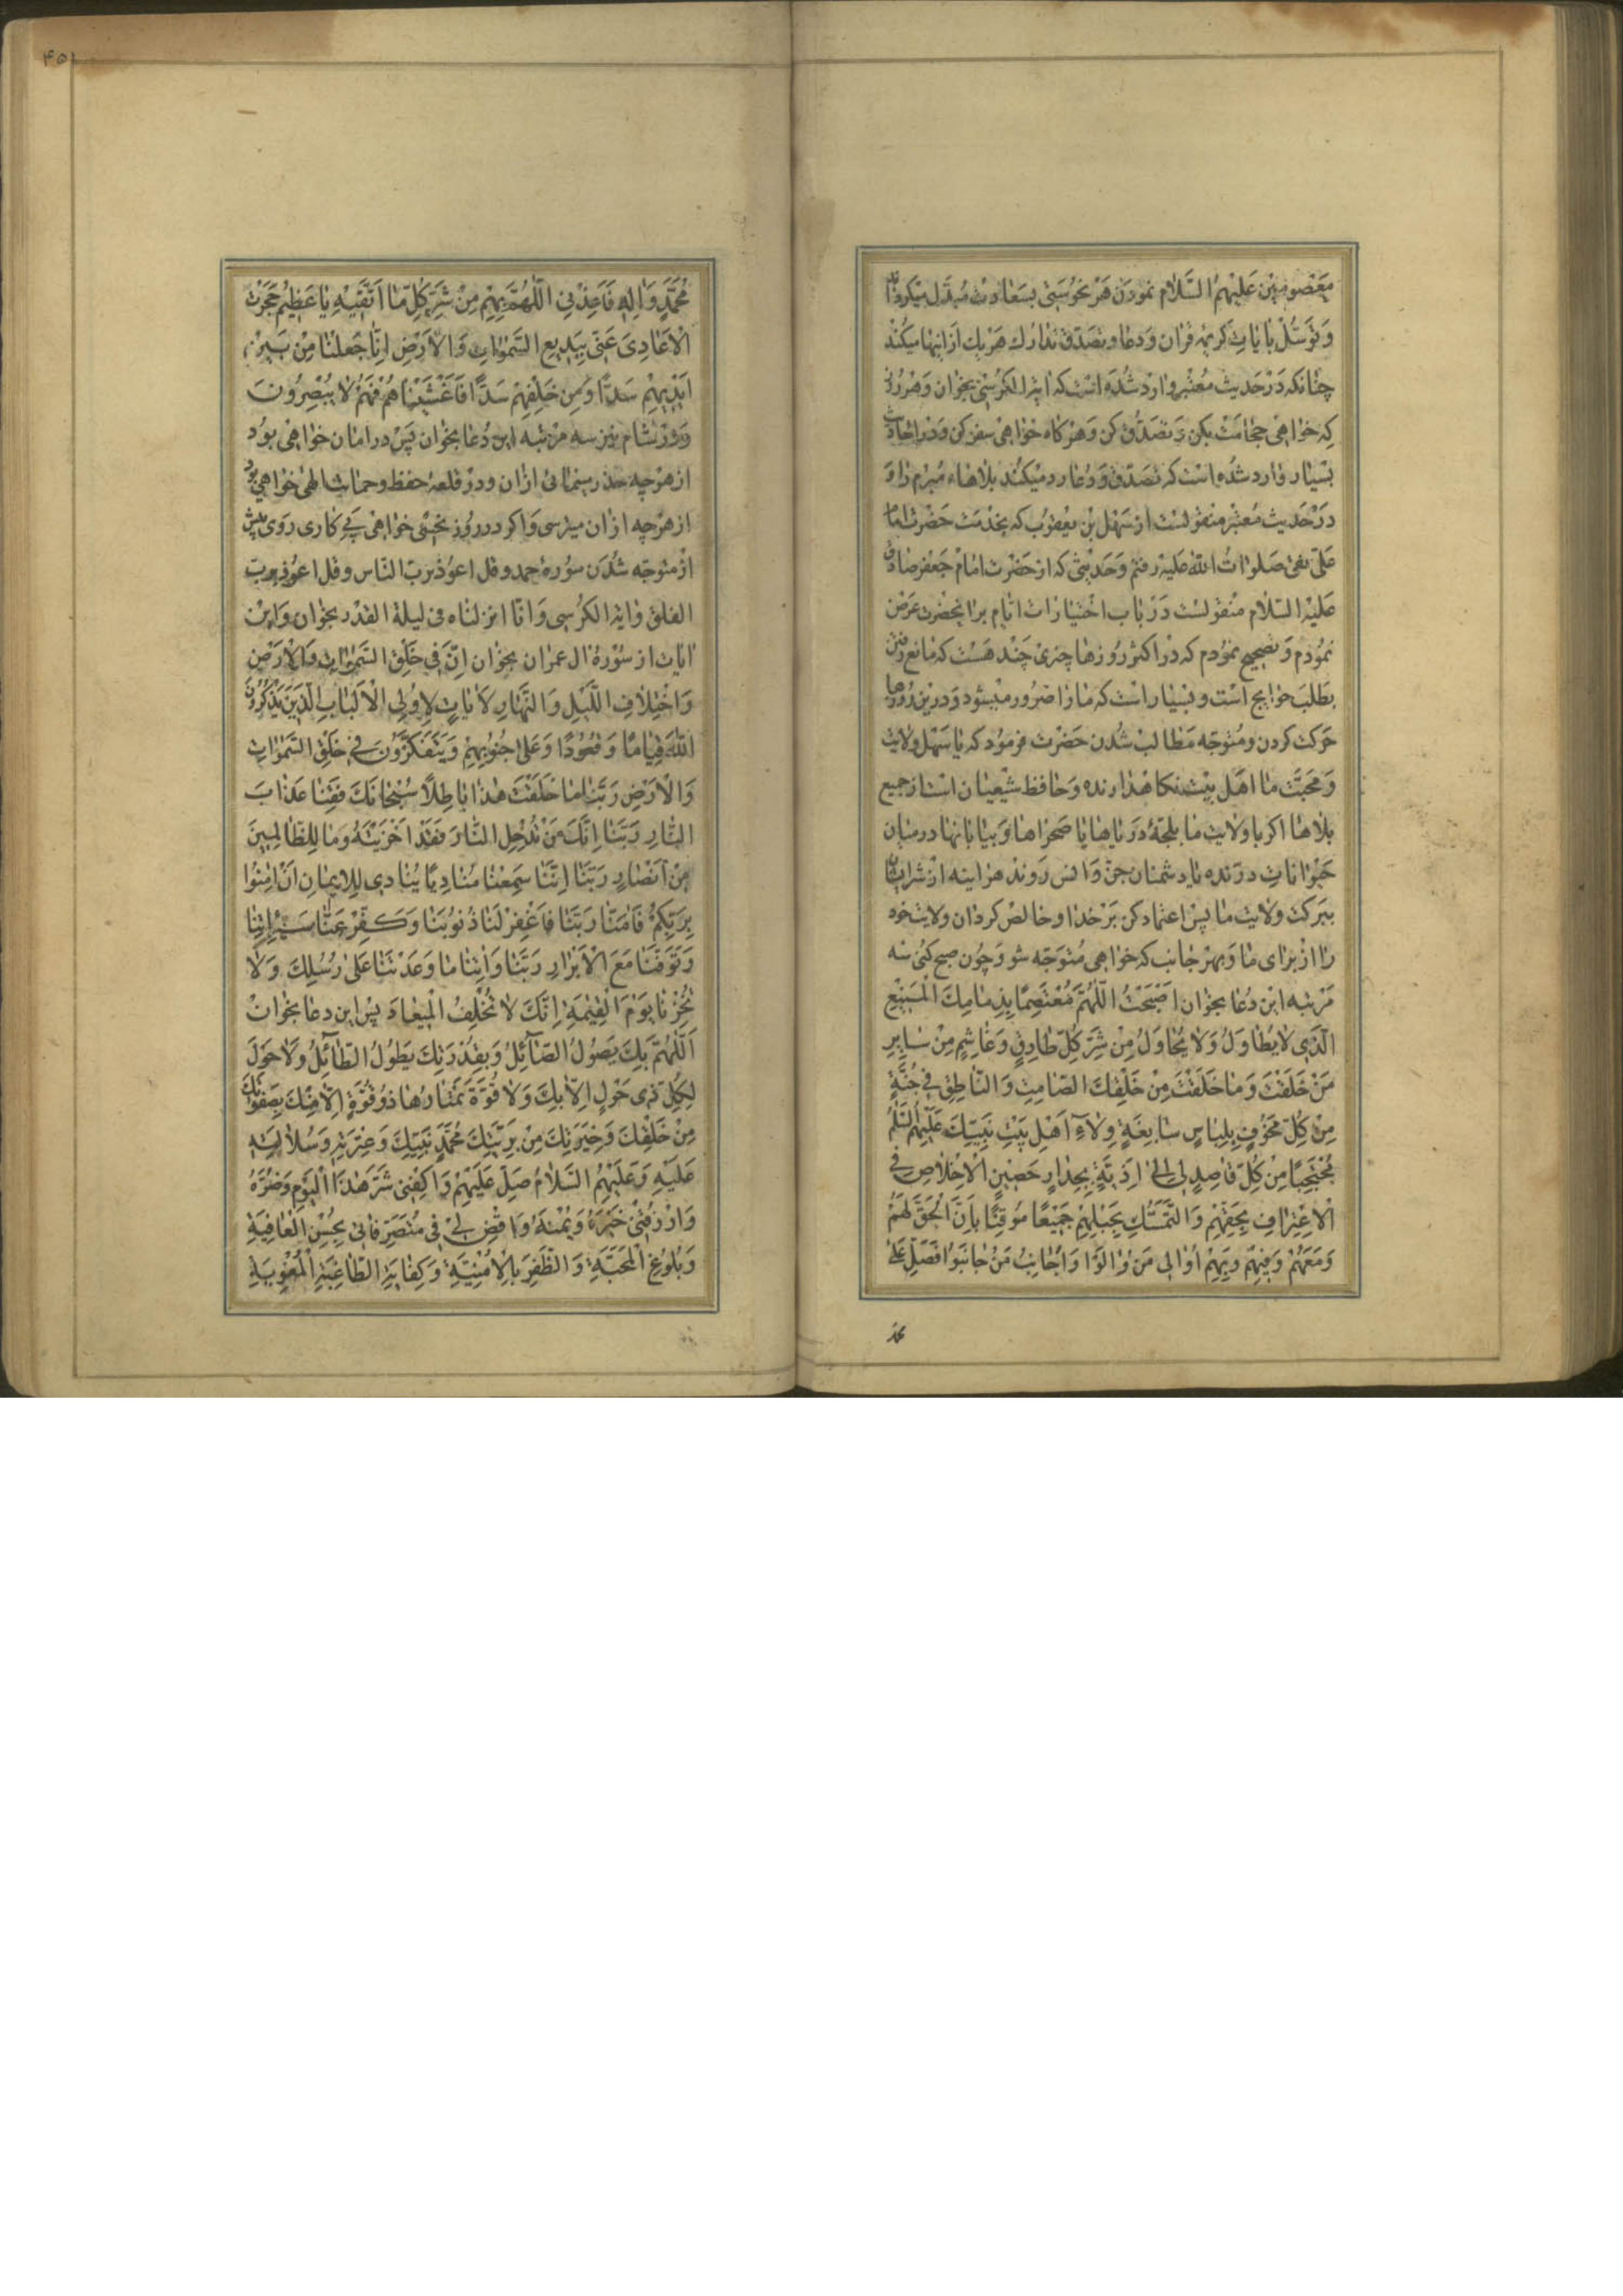 معصومین علیهم السّلام نمودن هر نحوستی بسعادت مبدّل میکرداند
و توسّل بایات کریمه قران و دعا و تصدّق تدارک هر یک از اینها میکند
چنانکه در حدیث معتبر وارد شده است که ایة الکرسی بخوان و هر روزی
که خواهی حجامت بکن و تصدّق کن و هرکاه خواهی سفر کن و در احادیث
بسیار وارد شده است که تصدّق و دعا رد میکند بلاهاء مبرم را و
در حدیث معتبر منقولست از سهل بن یعقوب که بخدمت حضرت امام
علی نقی صلوات الله علیه رفتم و حدیثی که از حضرت امام جعفر صادق
علیه السّلام منقولست در باب اختیارات ایام برا نحضرت عرض
نمودم و تصحیح نمودم که در اکثر روزها چیزی چند هست که مانع رفتن
بطلب حوایج است و بسیار است که ما را ضرور میشود در این روزها
حرکت کردن و متوجّه مطالب شدن حضرت فرمود که یا سهل ولایت
و محبّت ما اهل بیت نکاهدارنده و حافظ شیعیان است از جمیع
بلاها اکر با ولایت ما بلجّهٔ دریاها یا صحراها و بیابانها در میان
حیوانات درنده یا دشمنان جن و انس روند هراینه از شر ایشان
ببرکت ولایت ما پس اعتماد کن بر خدا و خالص کردان ولایت خود
را از برای ما و بهر جانب که خواهی متوجّه شو و چون صبح کنی سه
مرتبه این دعا بخوان اَصْبَحْتُ اللّهُمَّ مُعْتَصِمًا بِذِمامِكَ الْمَنیعِ
الَّذی لا یُطاوَلُ وَلا یُحاوَلُ مِنْ شَرِّ كُلِّ طارِقٍ وَغاشِمٍ مِنْ سایِرِ
مَنْ خَلَقْتَ وَما خَلَقْتَ مِنْ خَلْقِكَ الصّامِتِ وَالنّاطِقِ فی جُنَّةٍ
مِنْ كُلِّ مَخُوفٍ بِلِباسٍ سابِغَةٍ وِلاءِ اَهْلِ بَیْتِ نَبِیِّكَ عَلَیْهِمُ السَّلمُ
مُحْتَجِبًا مِنْ كُلِّ قاصِدٍ لی اِلی اَذِیَّةٍ بِجِدارٍ حَصینِ الْاِخْلاصِ فی
الْاِعْتِرافِ بِحَقِّهِمْ وَالتَّمَسُّكِ بِحَبْلِهِمْ جَمیعًا مُوقِنًا بِاَنَّ الْحَقَّ لَهُمْ
وَمَعَهُمْ وَفیهِمْ وَبِهِمْ اُوالی مَنْ والَوْا وَاُجانِبُ مَنْ جانَبُوا فَصَلِّ عَلی
محمّد
مُحَمَّدٍ وَالِهِ فَاَعِذْنی اللّهُمَّ بِهِمْ مِنْ شَرِّ كُلِّ ما اَتَّقیهِ یا عَظیمُ حَجَزْتُ
الْاَعادِیَ عَنّی بِبَدیعِ السَّمواتِ وَالْاَرْضِ اِنّا جَعَلْنا مِنْ بَیْنِ
اَیْدیهِمْ سَدًّا وَمِنْ خَلْفِهِمْ سَدًّا فَاَغْشَیْناهُمْ فَهُمْ لا یُبْصِرُونَ
و در شام نیز سه مرتبه این دعا بخوان پس در امان خواهی بود
از هرچه حذر مینمائی از ان و در قلعهٔ حفظ و حمایت الهی خواهی بود
از هرچه از ان میترسی و اکر در روز نحسی خواهی پی کاری روی پیش
از متوجّه شدن سورهٔ حمد و قل اعوذ بربّ النّاس و قل اعوذ بربّ
الفلق و ایة الکرسی و انّا انزلناه فی لیلة القدر بخوان و این
ایات از سورهٔ ال عمران بخوان اِنَّ فی خَلْقِ السَّمواتِ وَالْاَرْضِ
وَاخْتِلافِ اللَّیْلِ وَالنَّهارِ لَایاتٍ لِاُولِی الْاَلْبابِ الَّذینَ یَذْكُرُونَ
اللّهَ قِیامًا وَقُعُودًا وَعَلی جُنُوبِهِمْ وَیَتَفَكَّرُونَ فی خَلْقِ السَّمواتِ
وَالْاَرْضِ رَبَّنا ما خَلَقْتَ هذا باطِلاً سُبْحانَكَ فَقِنا عَذابَ
النّارِ رَبَّنا اِنَّكَ مَنْ تُدْخِلِ النّارَ فَقَدْ اَخْزَیْتَهُ وَما لِلظّالِمینَ
مِنْ اَنْصارٍ رَبَّنا اِنَّنا سَمِعْنا مُنادِیًا یُنادی لِلْایمانِ اَنْ امِنُوا
بِرَبِّكُمْ فَامَنّا رَبَّنا فَاغْفِرْ لَنا ذُنُوبَنا وَكَفِّرْ عَنّا سَیِّئاتِنا
وَتَوَفَّنا مَعَ الْاَبْرارِ رَبَّنا وَاتِنا ما وَعَدْتَنا عَلی رُسُلِكَ وَلا
تُخْزِنا یَوْمَ الْقِیمَةِ اِنَّكَ لا تُخْلِفُ الْمیعادَ پس این دعا بخوان
اَللّهُمَّ بِكَ یَصُولُ الصّآئِلُ وَبِقُدْرَتِكَ یَطُولُ الطّآئِلُ وَلا حَوْلَ
لِكُلِّ ذی حَوْلٍ اِلاّ بِكَ وَلا قُوَّةَ یَمْتارُها ذُو قُوَّةٍ اِلاّ مِنْكَ بِصَفْوَتِكَ
مِنْ خَلْقِكَ وَخِیَرَتِكَ مِنْ بَرِیَّتِكَ مُحَمَّدٍ نَبِیِّكَ وَعِتْرَتِهِ وَسُلالَتِهِ
عَلَیْهِ وَعَلَیْهِمُ السَّلامُ صَلِّ عَلَیْهِمْ وَاكْفِنی شَرَّ هذَا الْیَوْمِ وَضُرَّهُ
وَارْزُقْنی خَیْرَهُ وَیُمْنَهُ وَاقْضِ لی فی مُتَصَرِّفاتی بِحُسْنِ الْعافِیَةِ
وَبُلُوغِ الْمَحَبَّةِ وَالظَّفَرِ بِالْاُمْنِیَّةِ وَكِفایَةِ الطّاغِیَةِ الْمُغْوِیَةِ